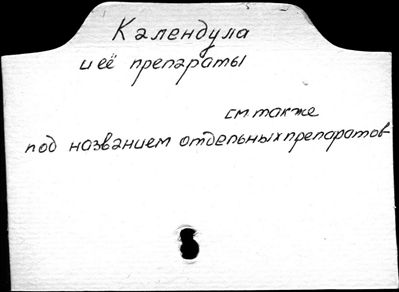 Календула
и её препараты
см. также
под названием отдельных препаратов